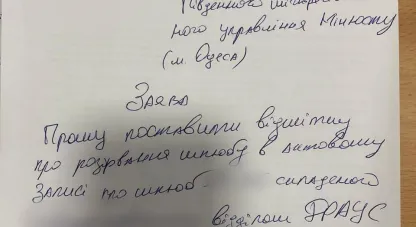 Південного міжрегіо
ного управління Мінюсту
(м. Одеса)
Заява
Прошу поставити відмітку
про розірвання шлюбу в актовому
записі про шлюб складеного
відділом ДРАЦС